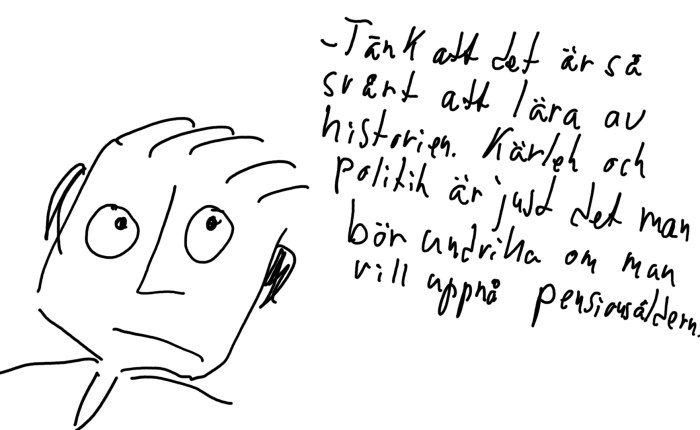 -Tänk att det är så
svårt att lära av
historien. Kärlek och
politik är just det man
bör undvika om man
vill uppnå pensionsåldern.